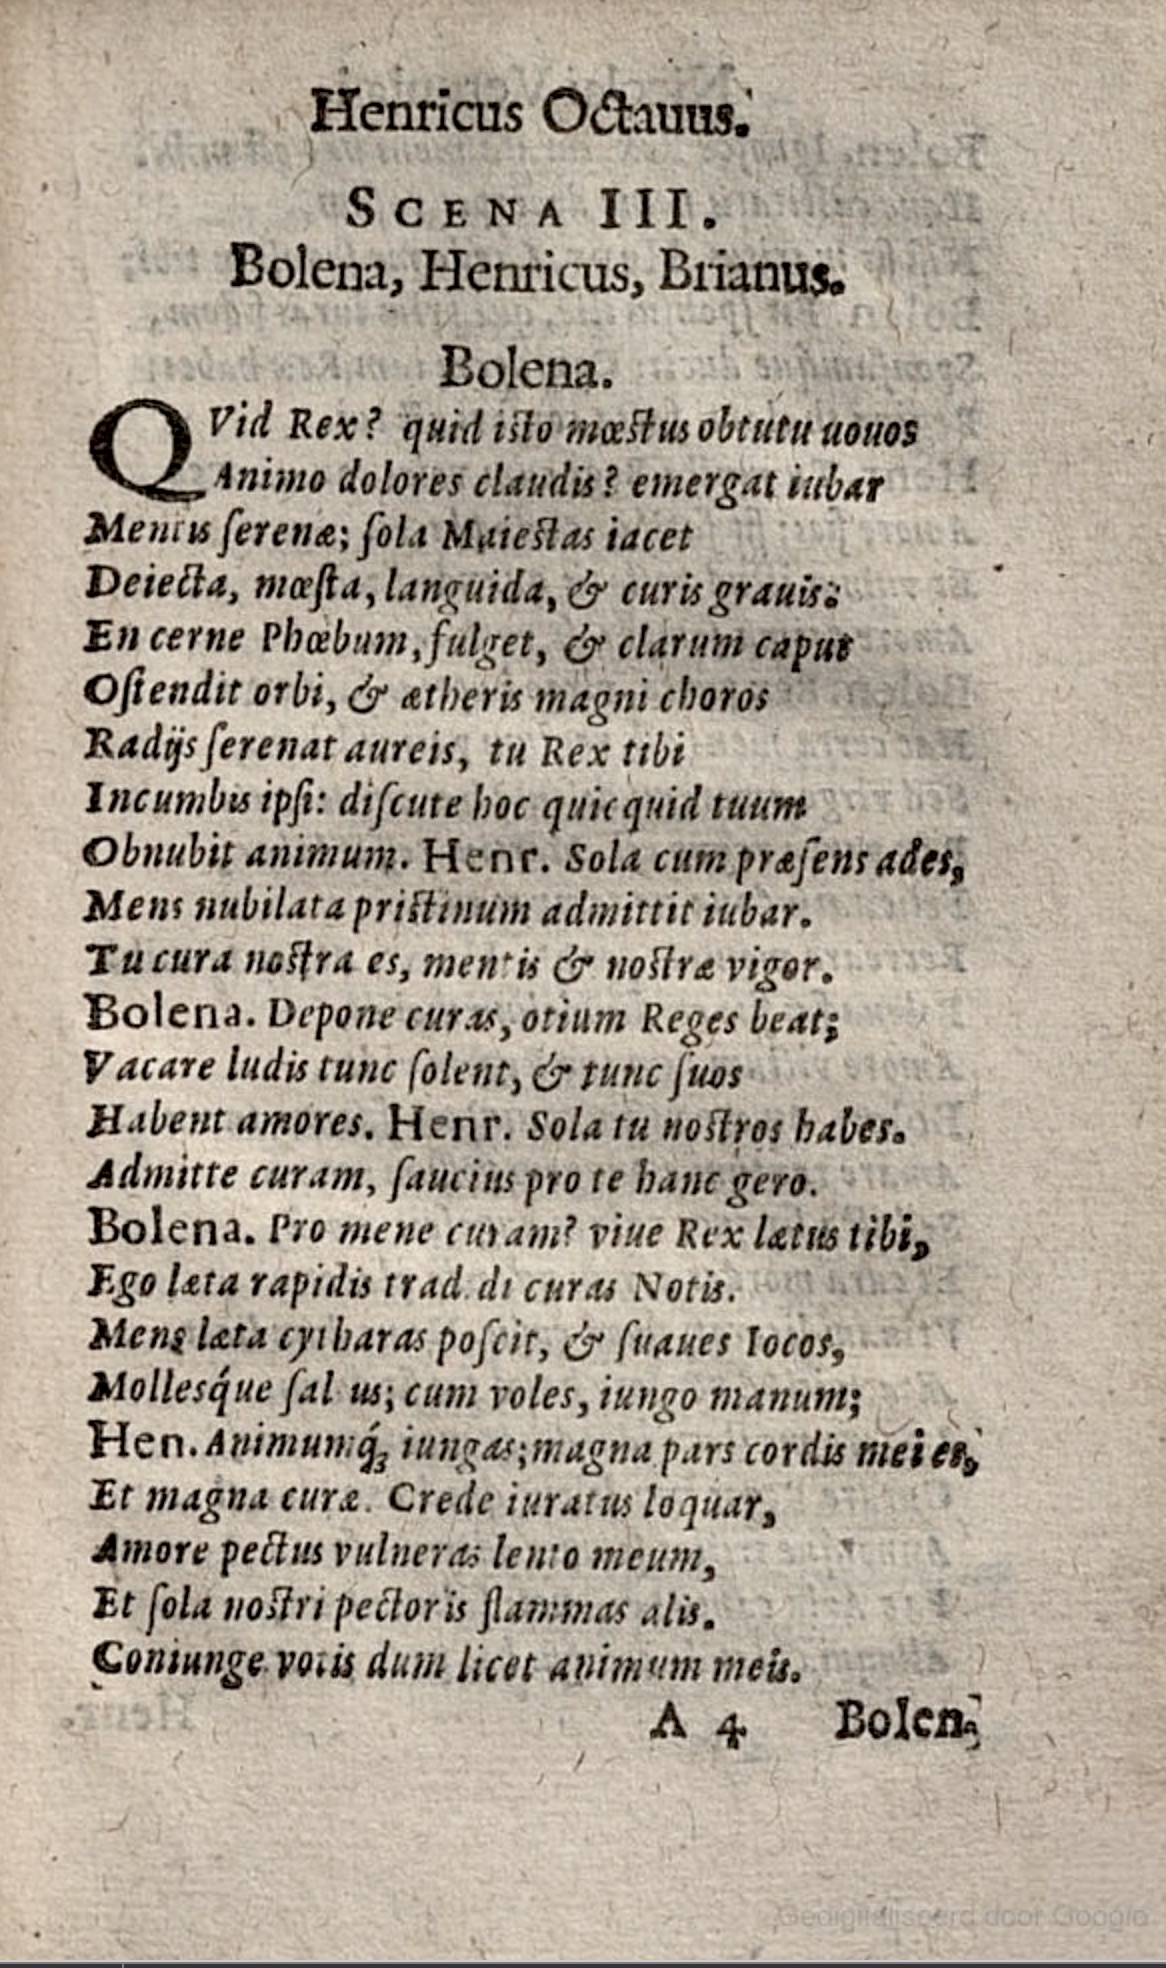 Henricus Octauus.
SCENA III.
Bolena, Henricus, Brianus.
Bolena.
QVid Rex? quid isto mœstus obtutu nouos
Animo dolores claudis? emergat iubar
Mentis ſerenæ; ſola Maiestas iacet
Deiecta, mœſta, languida, & curis grauis:
En cerne Phœbum, fulget, & clarum caput
Oſtendit orbi, & ætheris magni choros
Radijs ſerenat aureis, tu Rex tibi
Incumbis ipſi: diſcute hoc quicquid tuum
Obnubit animum. Henr. Sola cum præſens ades,
Mens nubilata pristinum admittit iubar.
Tu cura nostra es, mentis & nostræ vigor.
Bolena. Depone curas, otium Reges beat;
Vacare ludis tunc ſolent, & tunc ſuos
Habent amores. Henr. Sola tu nostros habes.
Admitte curam, ſaucius pro te hanc gero.
Bolena. Pro mene curam? viue Rex lætus tibi,
Ego læta rapidis trad di curas Notis.
Mens læta cytharas poſcit, & ſuaues Iocos,
Mollesq́ue ſal us; cum voles, iungo manum;
Hen. Animumq́; iungas; magna pars cordis mei es,
Et magna curæ. Crede iuratus loquar,
Amore pectus vulneras lento meum,
Et ſola nostri pectoris flammas alis.
Coniunge votis dum licet animum meis.
A 4 Bolen.
Gedigitaliseerd door Google